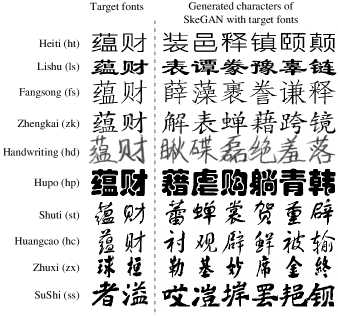 Target fonts Generated characters of
SkeGAN with target fonts
Heiti (ht) 蕴财 装邑释镇颐颠
Lishu (ls) 蕴财 表谭拳豫辜链
Fangsong (fs) 蕴财 薛藻裹誊谦释
Zhengkai (zk) 蕴财 解表蝉藉跨镜
Handwriting (hd) 蕴财 瞅碟磊绝羞落
Hupo (hp) 蕴财 籍虐购躺青韩
Shuti (st) 蕴财 蕾蝉裳贺重辟
Huangcao (hc) 蕴财 衬观辟鲜被输
Zhuxi (zx) 球桓 勒基妙席金終
SuShi (ss) 者溢 哎溰垾罢艳钡